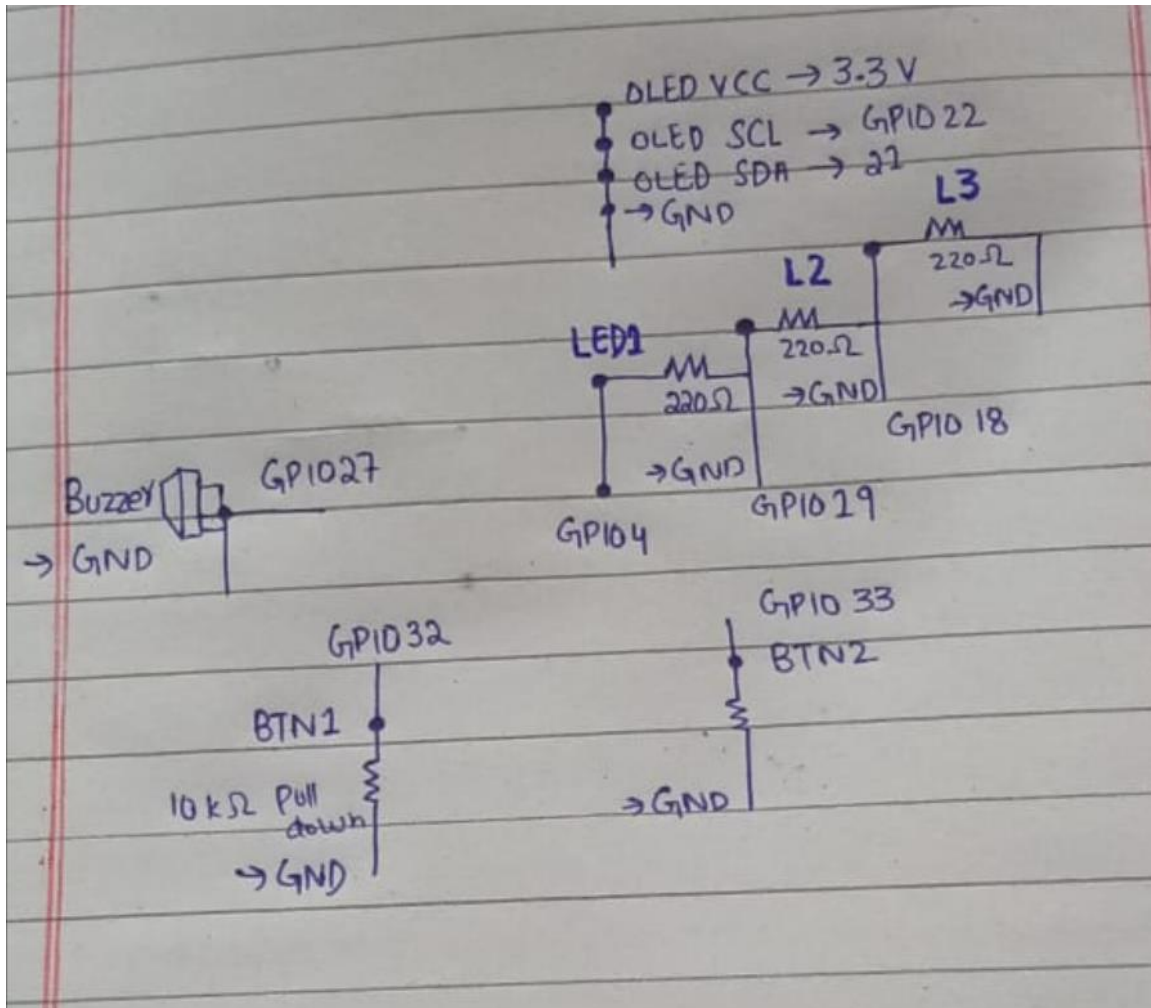 OLED VCC → 3.3 V
OLED SCL → GPIO 22
OLED SDA → 21
→ GND
L3
220Ω
→GND
L2
220Ω
→GND
GPIO 18
LED1
220Ω
→GND
GPIO 29
GPIO4
Buzzer
GPIO27
→ GND
GPIO32
BTN1
10 kΩ Pull
down
→ GND
GPIO 33
BTN2
→GND